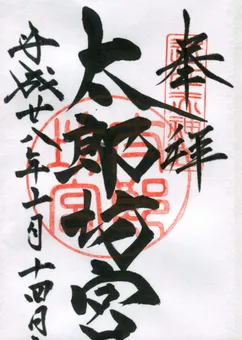 奉拝
太郎坊宮
平成廿八年十一月十四日